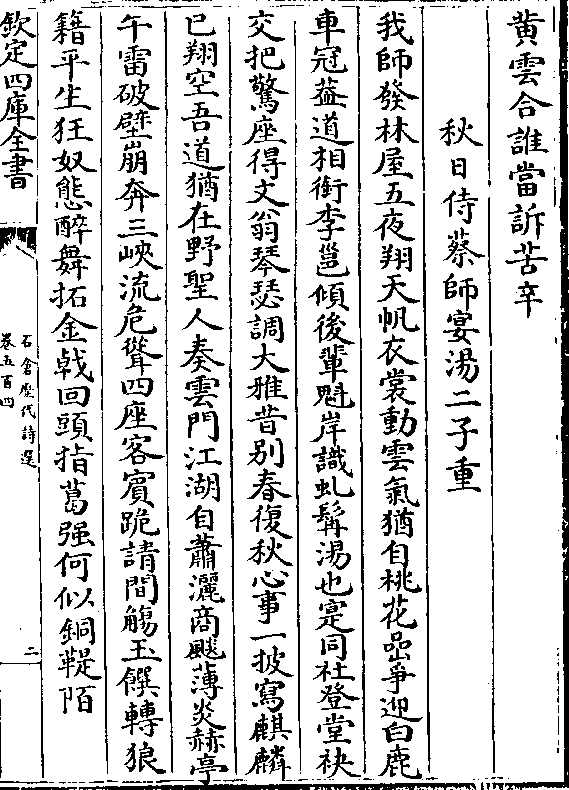 黄雲合誰當訴苦辛
秋日侍蔡師宴湯二子重
我師發林屋五夜翔天帆衣裳動雲氣猶自桃花嵒爭迎白鹿
車冠葢道相銜李邕傾後輩魁岸識虬髯湯也寔同社登堂袂
交把驚座得丈翁琴瑟調大雅昔别春復秋心事一披寫麒麟
已翔空吾道猶在野聖人奏雲門江湖自蕭灑商飈薄炎赫亭
午雷破壁崩奔三峽流危聳四座客賓跪請間觴玉饌轉狼
籍平生狂奴態醉舞拓金㦸回頭指葛强何似銅鞮陌
欽定四庫全書
石倉歷代詩選
卷五百四
二